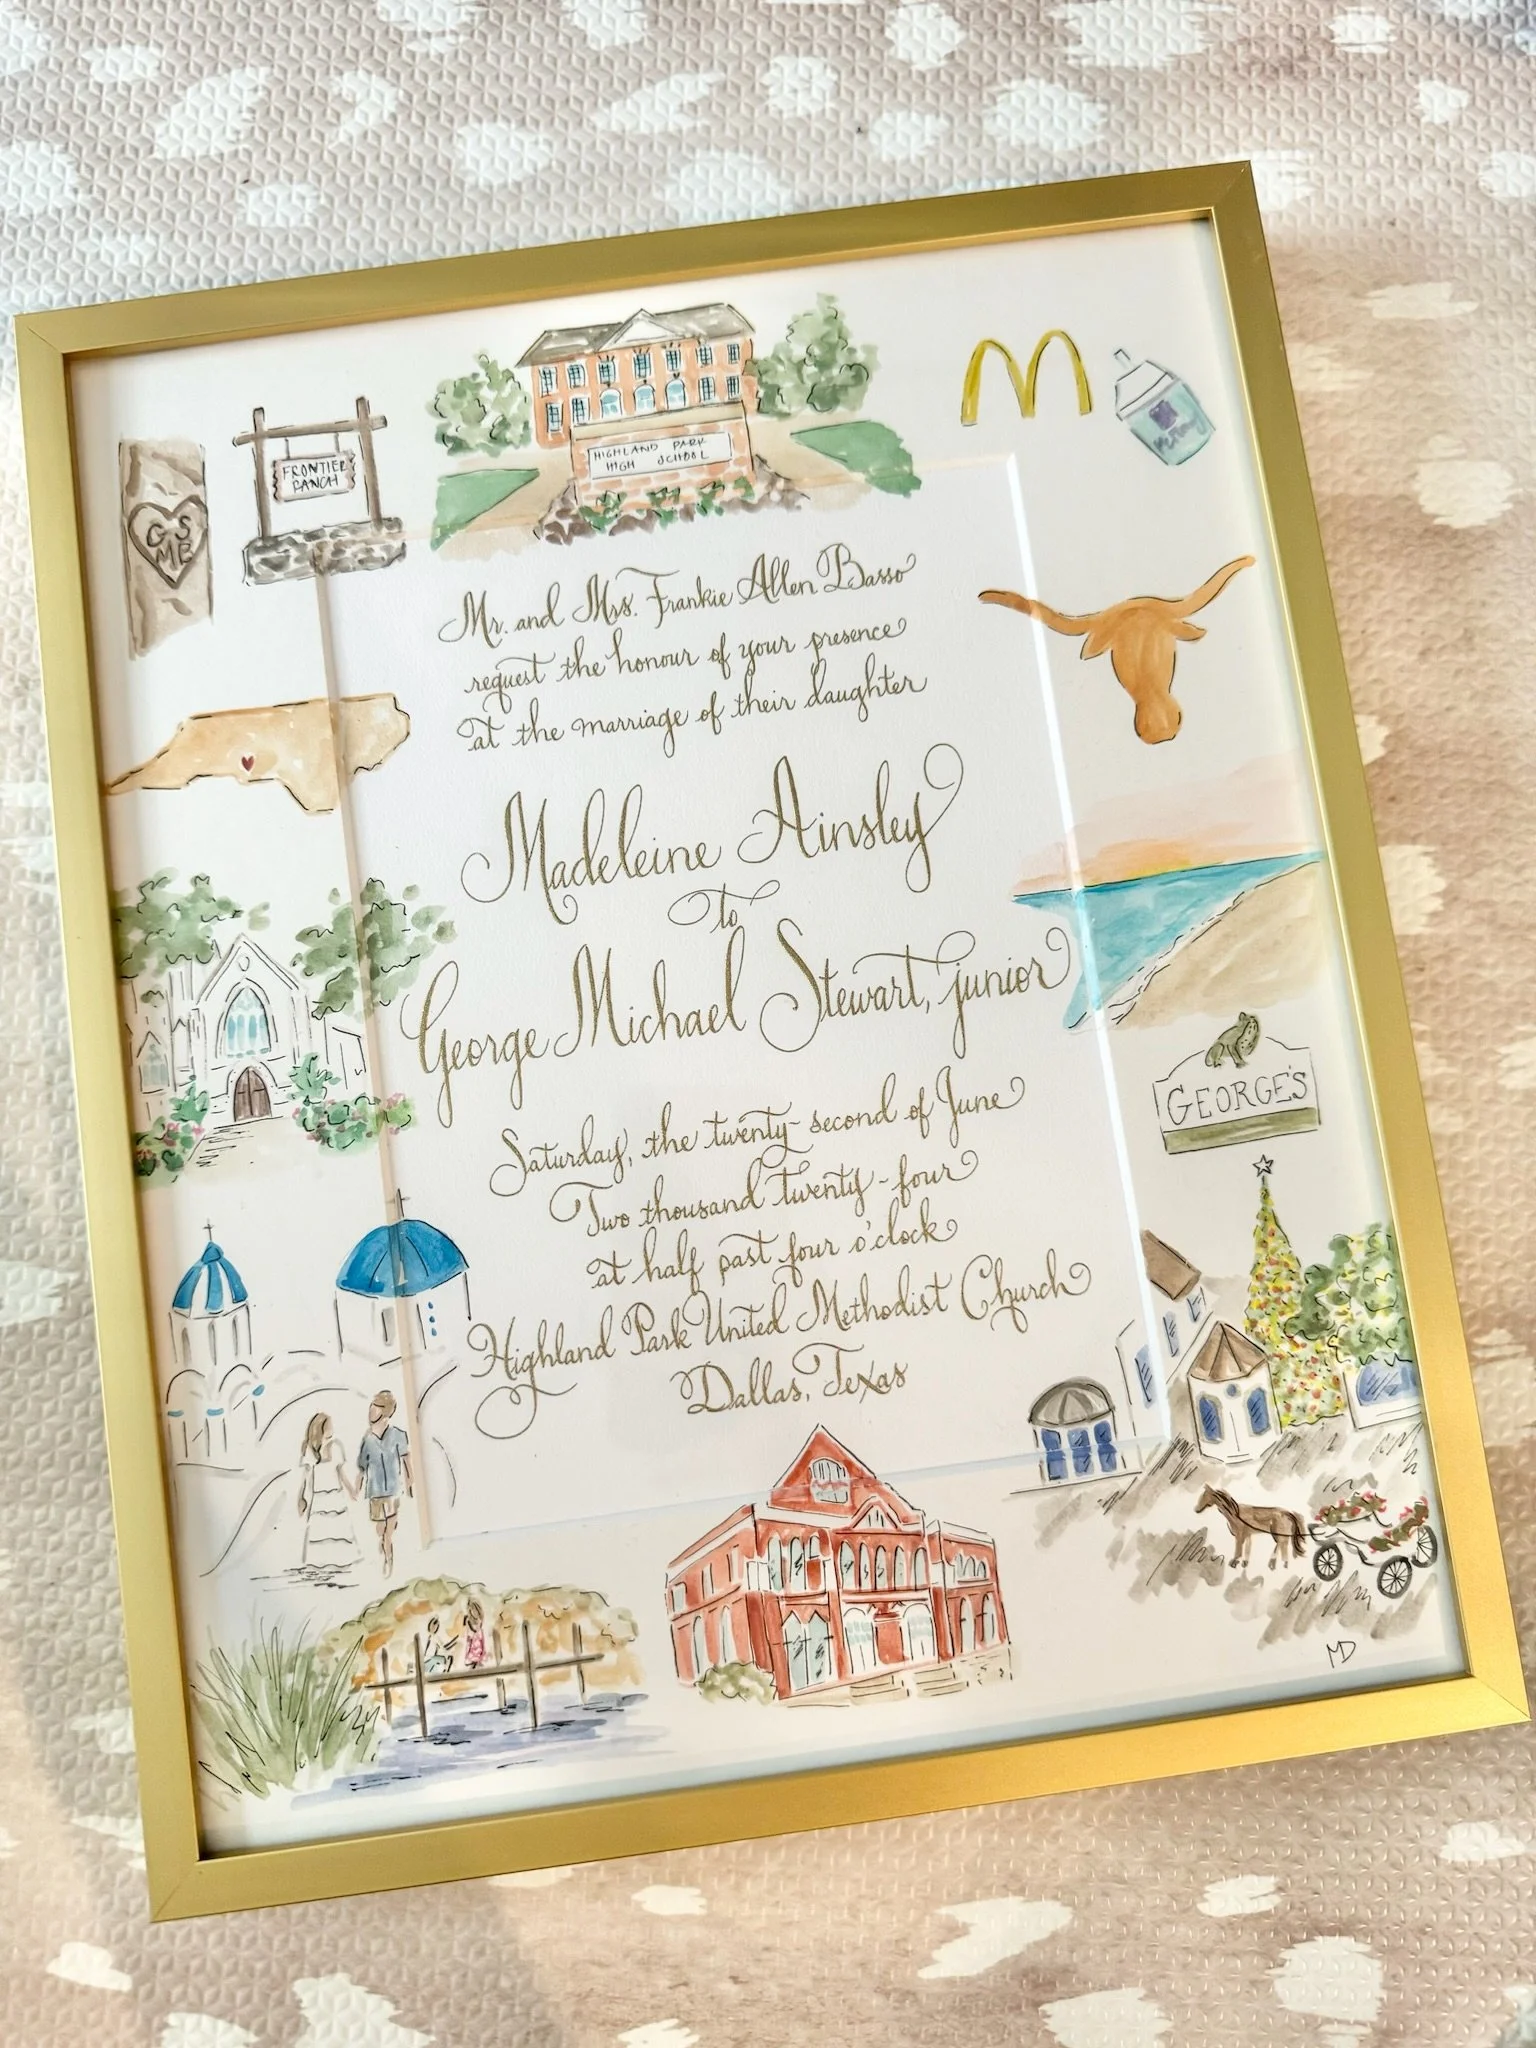 FRONTIER
RANCH
G S
M B
HIGHLAND PARK
HIGH SCHOOL
Mr. and Mrs. Frankie Allen Basso
request the honour of your presence
at the marriage of their daughter
Madeleine Ainsley
to
George Michael Stewart, junior
Saturday, the twenty-second of June
Two thousand twenty-four
at half past four o'clock
Highland Park United Methodist Church
Dallas, Texas
GEORGE'S
MD